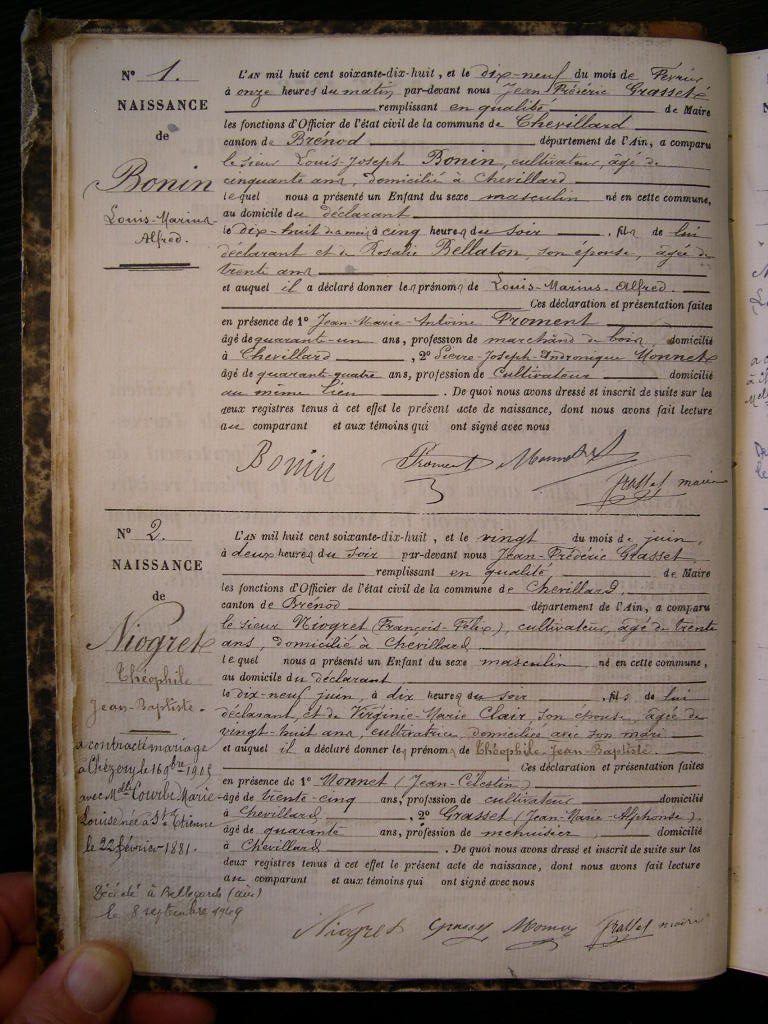 N° 1.
NAISSANCE
de
Bonin
Louis-Marius-
Alfred.
L'AN mil huit cent soixante-dix-huit, et le dix-neuf du mois de Février
à onze heures du matin par-devant nous Jean Frédéric Grasset
remplissant en qualité de Maire
les fonctions d'Officier de l'état civil de la commune de Chevillard
canton de Brénod département de l'Ain, a comparu
le sieur Louis-Joseph Bonin, cultivateur, âgé de
cinquante ans, domicilié à Chevillard
lequel nous a présenté un Enfant du sexe masculin né en cette commune,
au domicile du déclarant
le dix-huit du mois à cinq heures du soir, fils de lui
déclarant et de Rosalie Bellaton, son épouse, âgée de
trente ans
et auquel il a déclaré donner les prénoms de Louis-Marius-Alfred.
Ces déclaration et présentation faites
en présence de 1° Jean-Marie-Antoine Proment
âgé de quarante-un ans, profession de marchand de bois, domicilié
à Chevillard, 2° Pierre-Joseph-Andronique Monnet
âgé de quarante-quatre ans, profession de Cultivateur domicilié
au même lieu. De quoi nous avons dressé et inscrit de suite sur les
deux registres tenus à cet effet le présent acte de naissance, dont nous avons fait lecture
au comparant et aux témoins qui ont signé avec nous
Bonin Proment Monnet Grasset maire
N° 2.
NAISSANCE
de
Niogret
Théophile
Jean-Baptiste.
a contracté mariage
à Chézery le 16 9bre 1913
avec Mlle Courbe Marie-
Louise née à St Etienne
le 22 février 1881.
Décédé à Bellegarde (ain)
le 8 septembre 1949
L'AN mil huit cent soixante-dix-huit, et le vingt du mois de juin,
à deux heures du soir par-devant nous Jean-Frédéric Grasset
remplissant en qualité de Maire
les fonctions d'Officier de l'état civil de la commune de Chevillard,
canton de Brénod département de l'Ain, a comparu
le sieur Niogret (François-Félix), cultivateur, âgé de trente
ans, domicilié à Chévillard
lequel nous a présenté un Enfant du sexe masculin né en cette commune,
au domicile du déclarant
le dix-neuf juin, à dix heures du soir, fils de lui
déclarant, et de Virginie-Marie Clair, son épouse, âgée de
vingt-huit ans, cultivatrice, domiciliée avec son mari
et auquel il a déclaré donner les prénoms de Théophile-Jean-Baptiste.
Ces déclaration et présentation faites
en présence de 1° Monnet (Jean-Célestin)
âgé de trente-cinq ans, profession de cultivateur domicilié
à Chevillard, 2° Grasset (Jean-Marie-Alphonse).
âgé de quarante ans, profession de menuisier domicilié
à Chevillard. De quoi nous avons dressé et inscrit de suite sur les
deux registres tenus à cet effet le présent acte de naissance, dont nous avons fait lecture
au comparant et aux témoins qui ont signé avec nous
Niogret Grasset Monnet Grasset maire